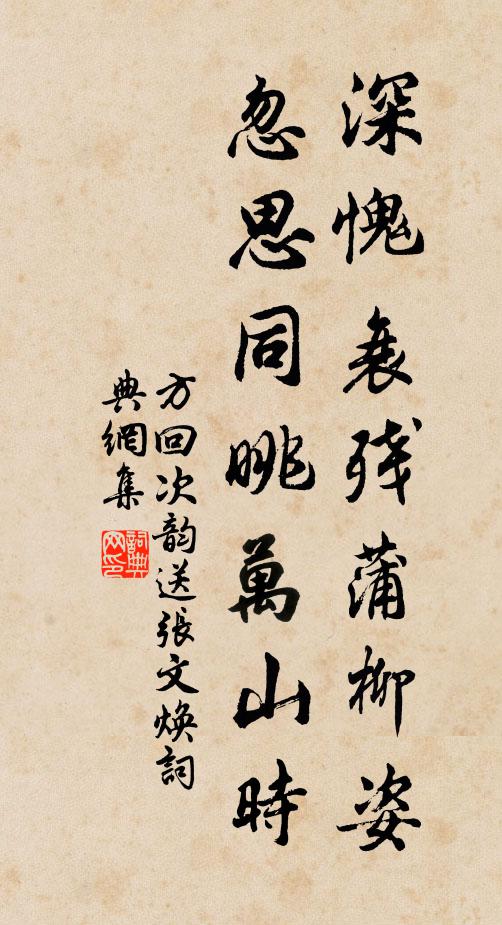 深愧衰残蒲柳姿
忽思同眺萬山時
方回次韵送張文焕詞
典網集
詞典
网印